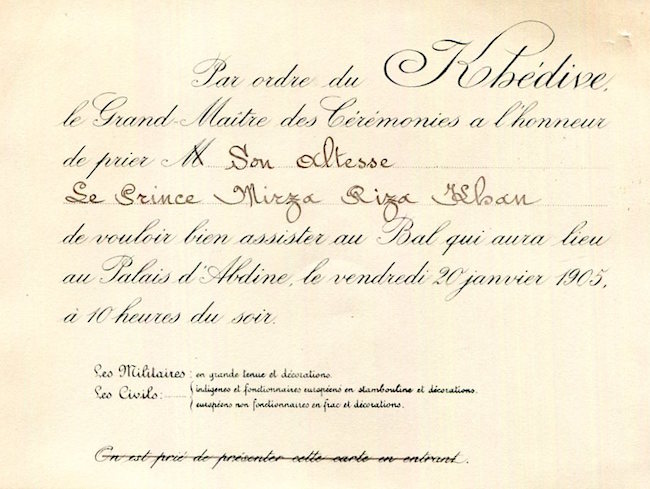 Par ordre du Khédive,
le Grand-Maître des Cérémonies a l'honneur
de prier M Son Altesse
Le Prince Mirza Riza Khan
de vouloir bien assister au Bal qui aura lieu
au Palais d'Abdine, le vendredi 20 janvier 1905,
à 10 heures du soir.
Les Militaires: en grande tenue et décorations.
Les Civils: indigènes et fonctionnaires européens en stambouline et décorations.
européens non fonctionnaires en frac et décorations.
On est prié de présenter cette carte en entrant.